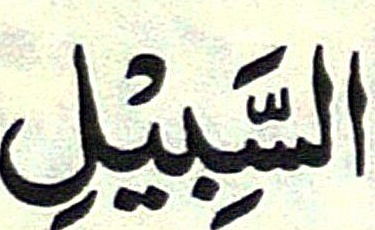 السَّبِيْلِ